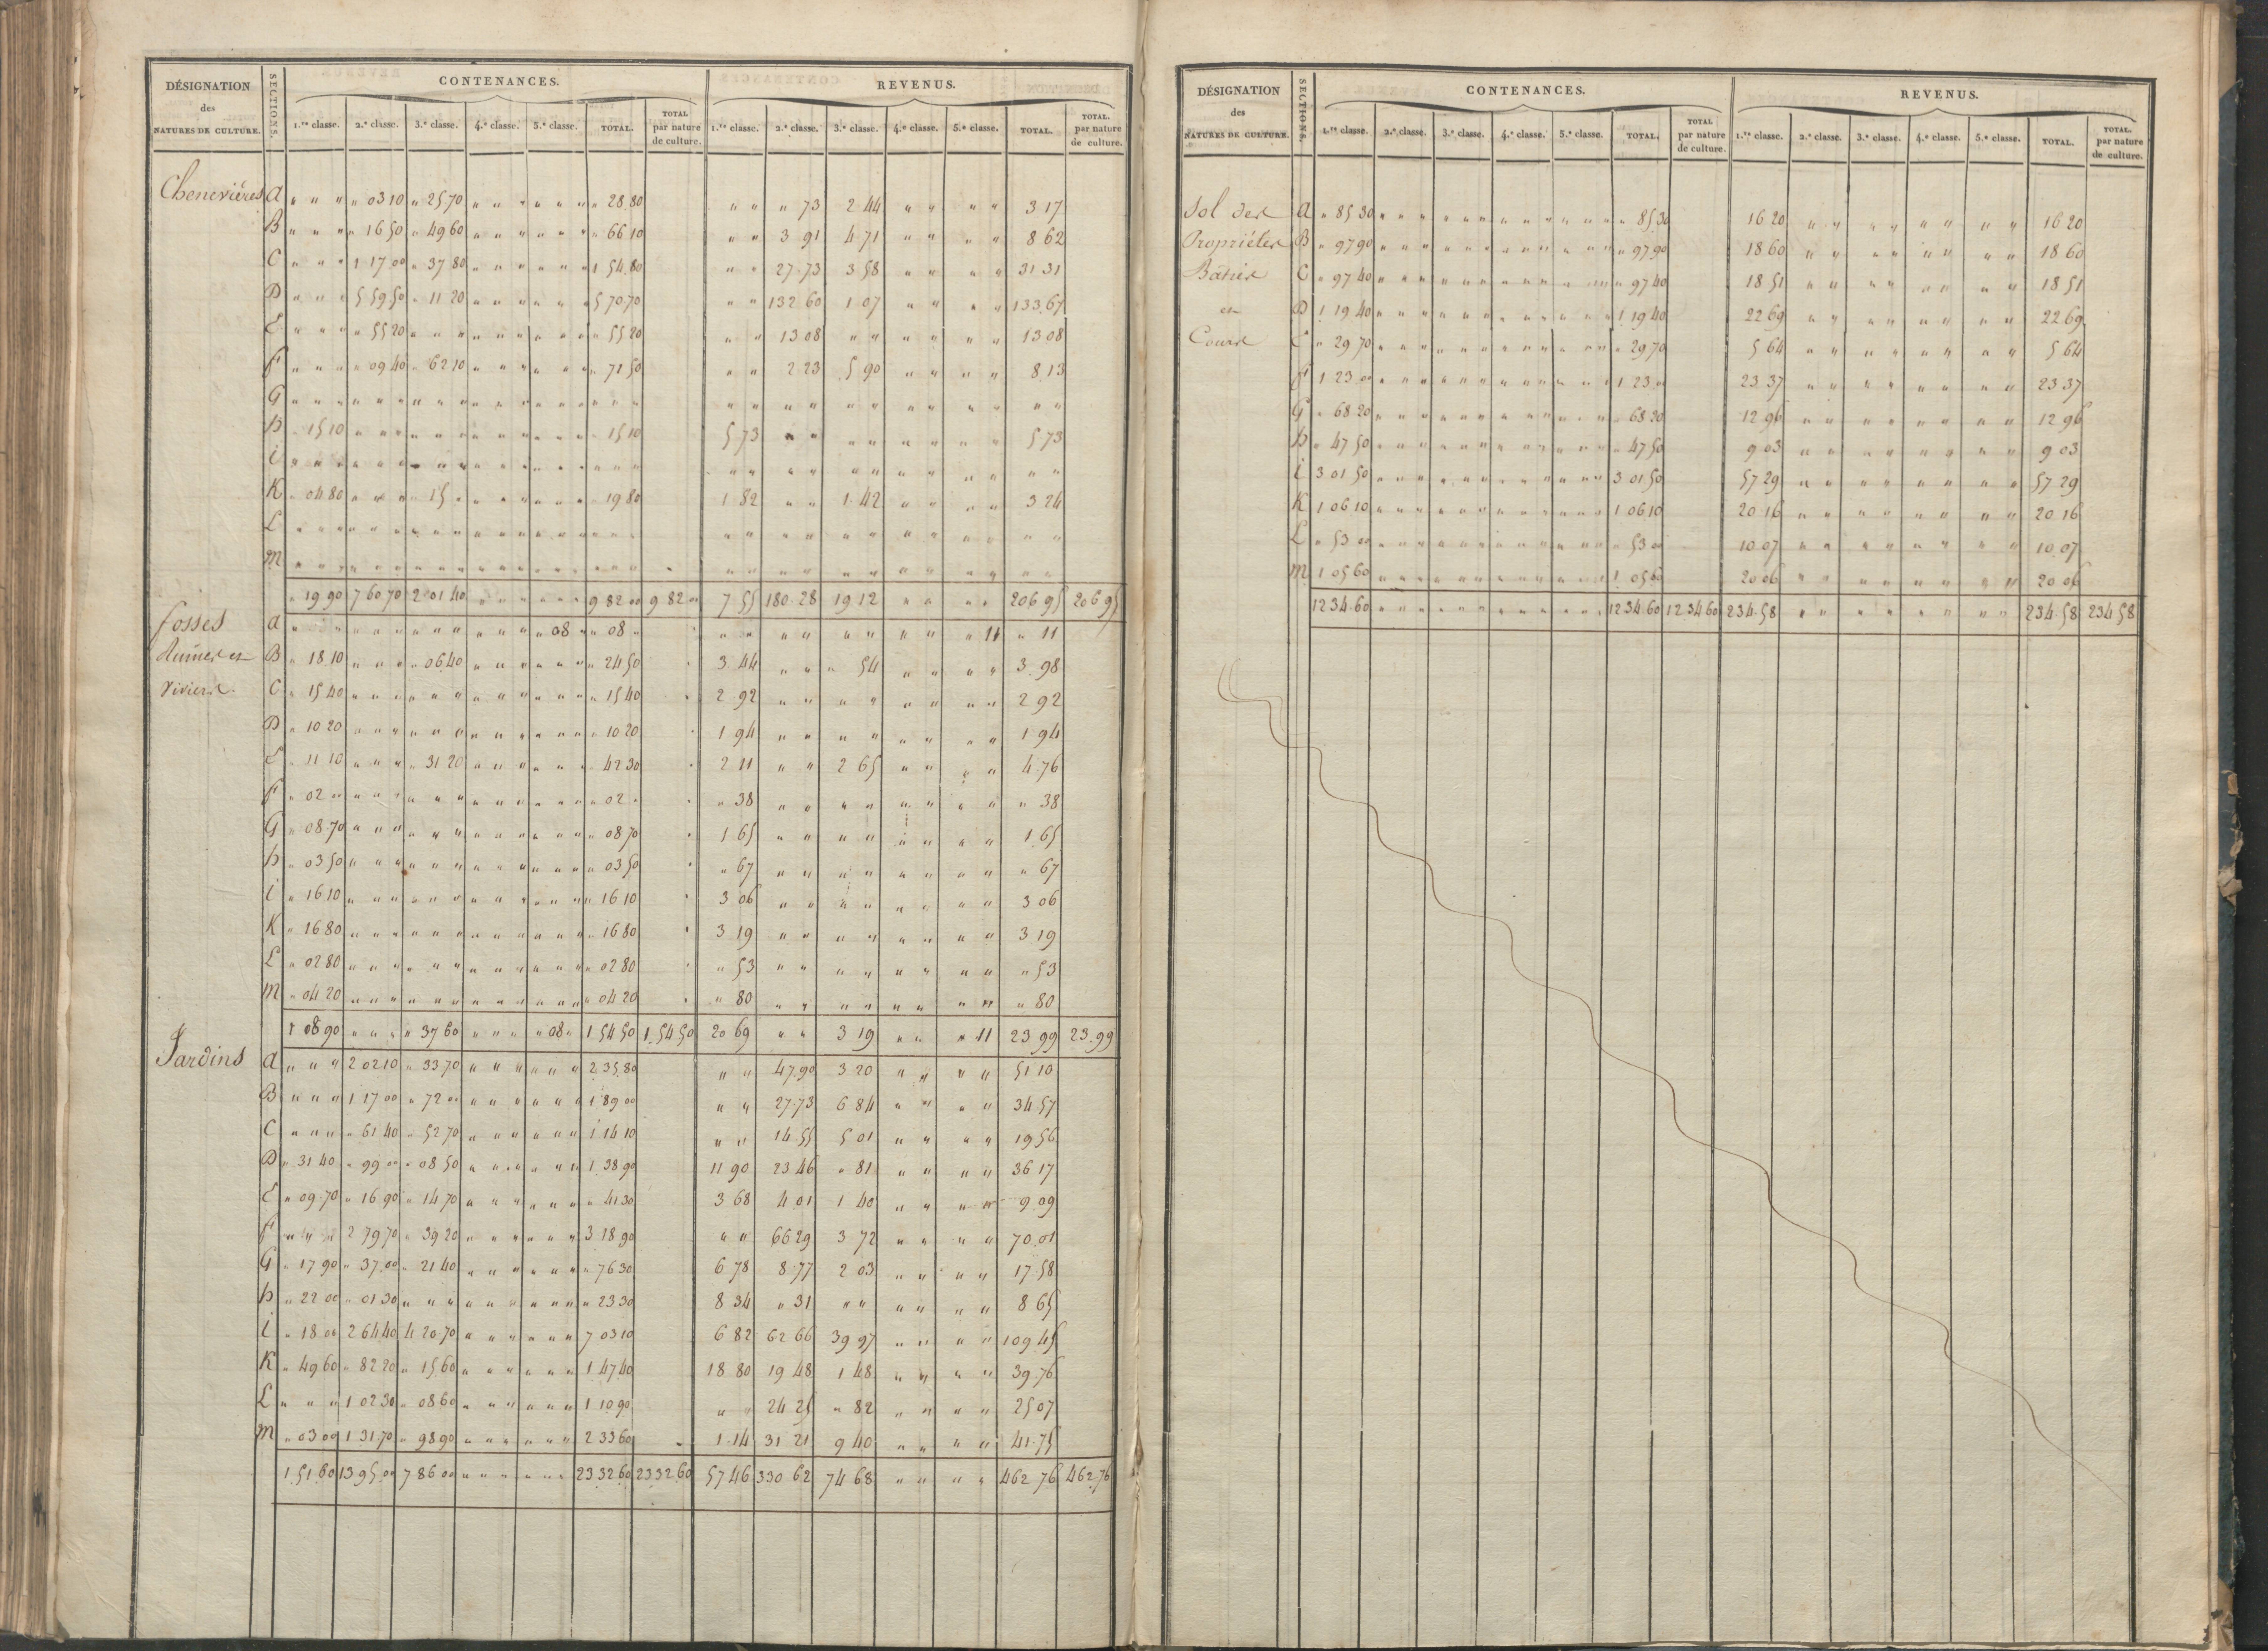 DÉSIGNATION des NATURES DE CULTURE. SECTIONS. CONTENANCES. REVENUS.
1.re classe. 2.e classe. 3.e classe. 4.e classe. 5.e classe. TOTAL. TOTAL par nature de culture. 1.re classe. 2.e classe. 3.e classe. 4.e classe. 5.e classe. TOTAL. TOTAL. par nature de culture.
Chenevières A " " " " 03 10 " 25 70 " " " " " " " 28 80 " " " 73 2 44 " " " " 3 17
B " " " " 16 50 " 49 60 " " " " " " " 66 10 " " 3 91 4 71 " " " " 8 62
C " " " 1 17 00 " 37 80 " " " " " " 1 54 80 " " 27 73 3 58 " " " " 31 31
D " " " 5 59 50 " 11 20 " " " " " " 5 70 70 " " 132 60 1 07 " " " " 133 67
E " " " " 55 20 " " " " " " " " " " 55 20 " " 13 08 " " " " " " 13 08
F " " " " 09 40 " 62 10 " " " " " " " 71 50 " " 2 23 5 90 " " " " 8 13
G " " " " " " " " " " " " " " " " " " " " " " " " " " " " " "
H " 15 10 " " " " " " " " " " " " " 15 10 5 73 " " " " " " " " 5 73
i " " " " " " " " " " " " " " " " " " " " " " " " " " " " " "
K " 04 80 " " " " 15 " " " " " " " " 19 80 1 82 " " 1 42 " " " " 3 24
L " " " " " " " " " " " " " " " " " " " " " " " " " " " " " "
M " " " " " " " " " " " " " " " " " " " " " " " " " " " " " "
" 19 90 7 60 70 2 01 40 " " " " " " 9 82 00 9 82 00 7 55 180 28 19 12 " " " " 206 95 206 95
Fosses A " " " " " " " " " " " " " 08 " " 08 " " " " " " " " " " 11 " 11
Rumes et B " 18 10 " " " " 06 40 " " " " " " " 24 50 3 44 " " " 54 " " " " 3 98
Viviers C " 15 40 " " " " " " " " " " " " " 15 40 2 92 " " " " " " " " 2 92
D " 10 20 " " " " " " " " " " " " " 10 20 1 94 " " " " " " " " 1 94
E " 11 10 " " " " 31 20 " " " " " " " 42 30 2 11 " " 2 65 " " " " 4 76
F " 02 " " " " " " " " " " " " " " 02 " " 38 " " " " " " " " " 38
G " 08 70 " " " " " " " " " " " " " 08 70 1 65 " " " " " " " " 1 65
H " 03 50 " " " " " " " " " " " " " 03 50 " 67 " " " " " " " " " 67
i " 16 10 " " " " " " " " " " " " " 16 10 3 06 " " " " " " " " 3 06
K " 16 80 " " " " " " " " " " " " " 16 80 3 19 " " " " " " " " 3 19
L " 02 80 " " " " " " " " " " " " " 02 80 " 53 " " " " " " " " " 53
M " 04 20 " " " " " " " " " " " " " 04 20 " 80 " " " " " " " " " 80
1 08 90 " " " " 37 60 " " " " 08 " 1 54 50 1 54 50 20 69 " " 3 19 " " " 11 23 99 23 99
Jardins A " " " 2 02 10 " 33 70 " " " " " " 2 35 80 " " 47 90 3 20 " " " " 51 10
B " " " 1 17 00 " 72 00 " " " " " " 1 89 00 " " 27 73 6 84 " " " " 34 57
C " " " " 61 40 " 52 70 " " " " " " 1 14 10 " " 14 55 5 01 " " " " 19 56
D " 31 40 " 99 00 " 08 50 " " " " " " 1 38 90 11 90 23 46 " 81 " " " " 36 17
E " 09 70 " 16 90 " 14 70 " " " " " " " 41 30 3 68 4 01 1 40 " " " " 9 09
F " " " 2 79 70 " 39 20 " " " " " " 3 18 90 " " 66 29 3 72 " " " " 70 01
G " 17 90 " 37 00 " 21 40 " " " " " " " 76 30 6 78 8 77 2 03 " " " " 17 58
H " 22 00 " 01 30 " " " " " " " " " " 23 30 8 34 " 31 " " " " " " 8 65
i " 18 00 2 64 40 4 20 70 " " " " " " 7 03 10 6 82 62 66 39 97 " " " " 109 45
K " 49 60 " 82 20 " 15 60 " " " " " " 1 47 40 18 80 19 48 1 48 " " " " 39 76
L " " " 1 02 30 " 08 60 " " " " " " 1 10 90 " " 24 25 " 82 " " " " 25 07
M " 03 00 1 31 70 " 98 90 " " " " " " 2 33 60 1 14 31 21 9 40 " " " " 41 75
1 51 60 13 95 00 7 86 00 " " " " " " 23 32 60 23 32 60 57 46 330 62 74 68 " " " " 462 76 462 76
DÉSIGNATION des NATURES DE CULTURE. SECTIONS. CONTENANCES. REVENUS.
1.re classe. 2.e classe. 3.e classe. 4.e classe. 5.e classe. TOTAL. TOTAL par nature de culture. 1.re classe. 2.e classe. 3.e classe. 4.e classe. 5.e classe. TOTAL. TOTAL. par nature de culture.
Sol des A " 85 30 " " " " " " " " " " " " " 85 30 16 20 " " " " " " " " 16 20
Propriétés B " 97 90 " " " " " " " " " " " " " 97 90 18 60 " " " " " " " " 18 60
Baties C " 97 40 " " " " " " " " " " " " " 97 40 18 51 " " " " " " " " 18 51
et D 1 19 40 " " " " " " " " " " " " 1 19 40 22 69 " " " " " " " " 22 69
Cours E " 29 70 " " " " " " " " " " " " " 29 70 5 64 " " " " " " " " 5 64
F 1 23 00 " " " " " " " " " " " " 1 23 00 23 37 " " " " " " " " 23 37
G " 68 20 " " " " " " " " " " " " " 68 20 12 96 " " " " " " " " 12 96
H " 47 50 " " " " " " " " " " " " " 47 50 9 03 " " " " " " " " 9 03
i 3 01 50 " " " " " " " " " " " " 3 01 50 57 29 " " " " " " " " 57 29
K 1 06 10 " " " " " " " " " " " " 1 06 10 20 16 " " " " " " " " 20 16
L " 53 00 " " " " " " " " " " " " " 53 00 10 07 " " " " " " " " 10 07
M 1 05 60 " " " " " " " " " " " " 1 05 60 20 06 " " " " " " " " 20 06
12 34 60 " " " " " " " " " " " " 12 34 60 12 34 60 234 58 " " " " " " " " 234 58 234 58